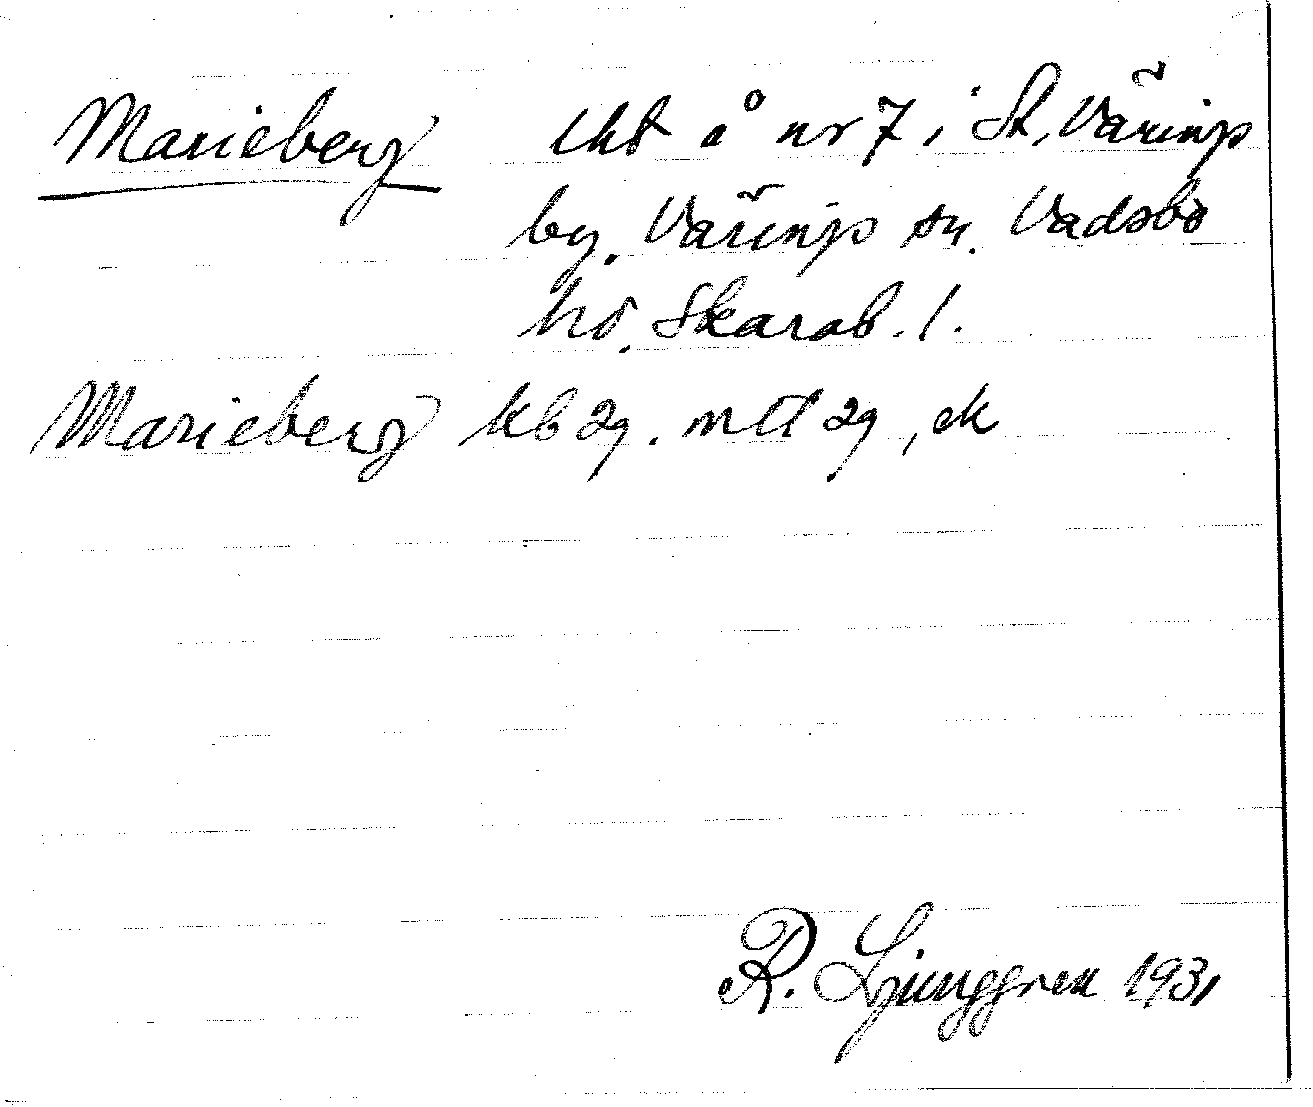 Marieberg lht å nr 7 i St. Värings
by. Värings sn. Vadsbo
hd. Skarab. l.
Marieberg kb 29. mtl 29, ek
R. Ljunggren 1931